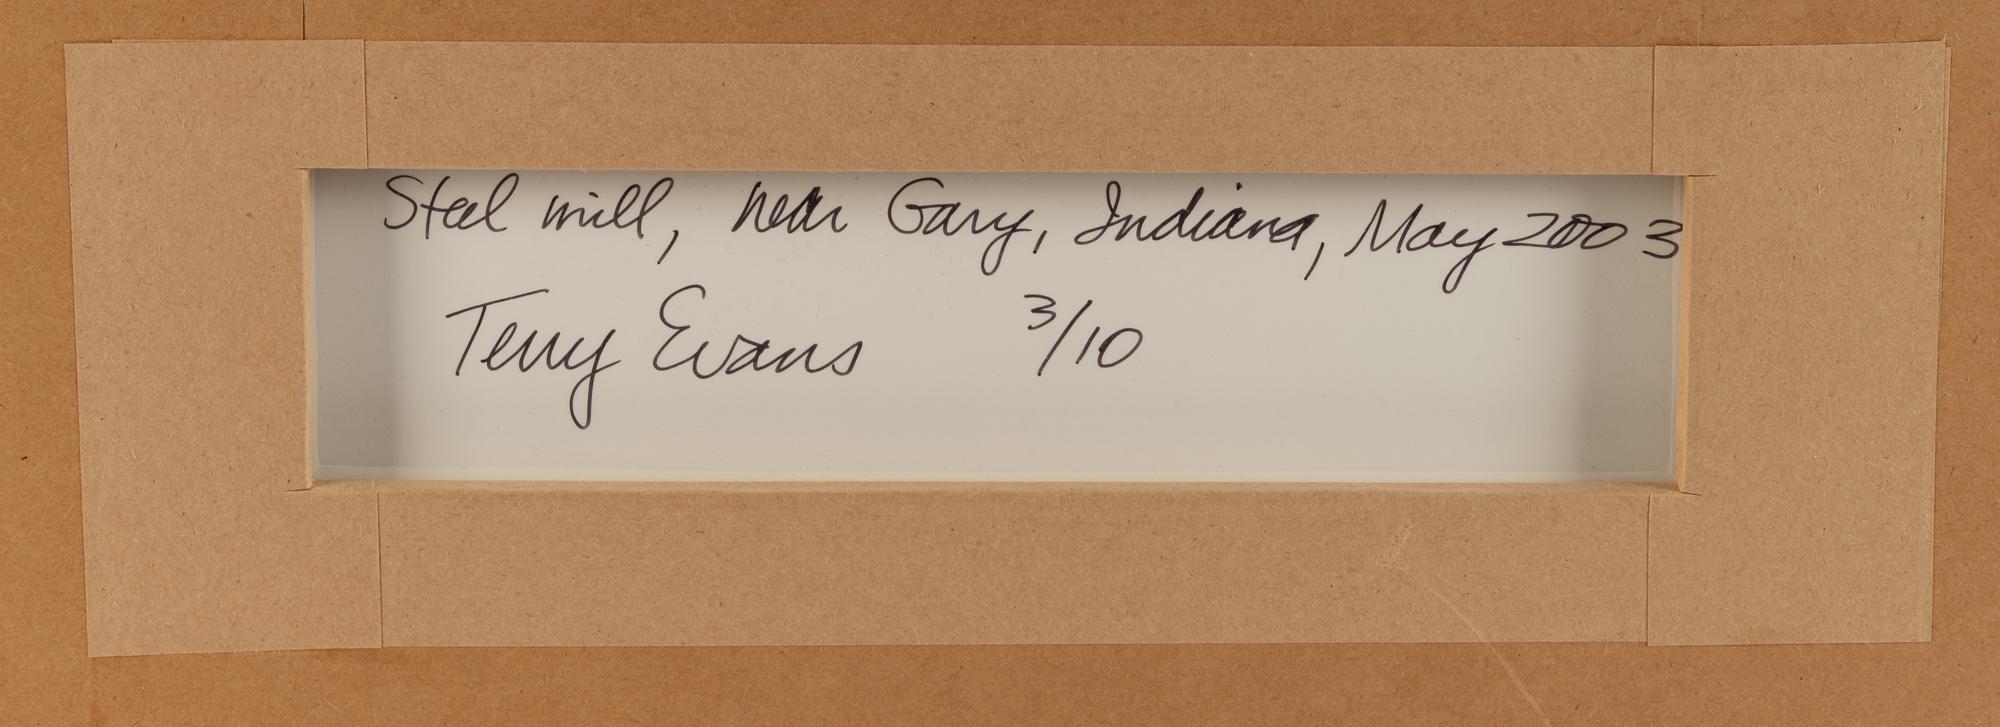 Steel mill, near Gary, Indiana, May 2003
Terry Evans 3/10